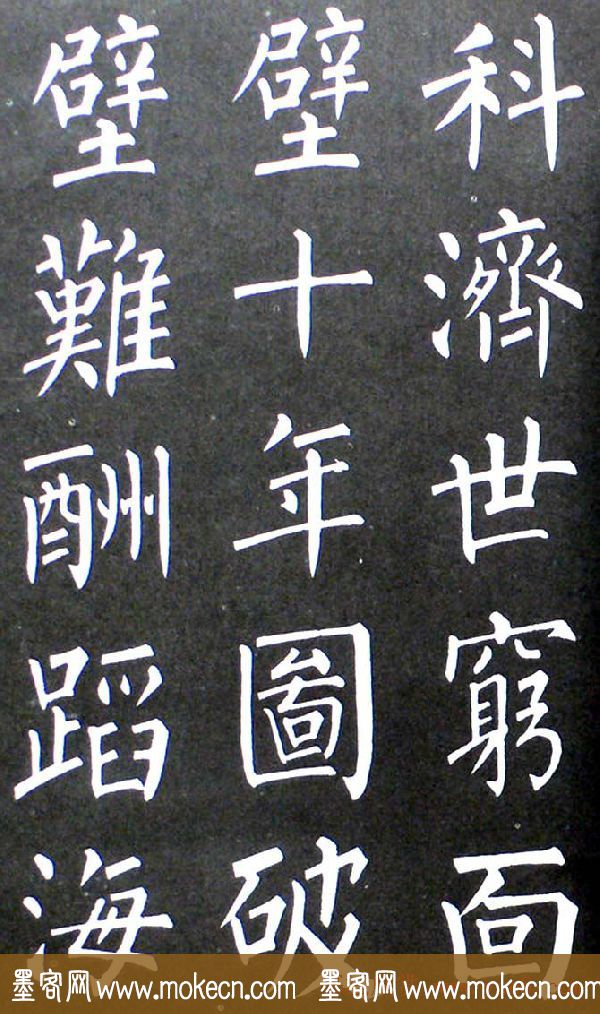 科濟世窮面
壁十年圖破
壁難酬蹈海
墨客网 www.mokecn.com 墨客网 www.mokecn.com